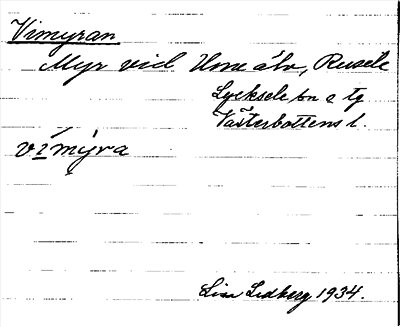 Vimyran
Myr vid Ume älv, Rusele
Lycksele sn o tg
Västerbottens l.
vímýra
Lisa Lidberg 1934.